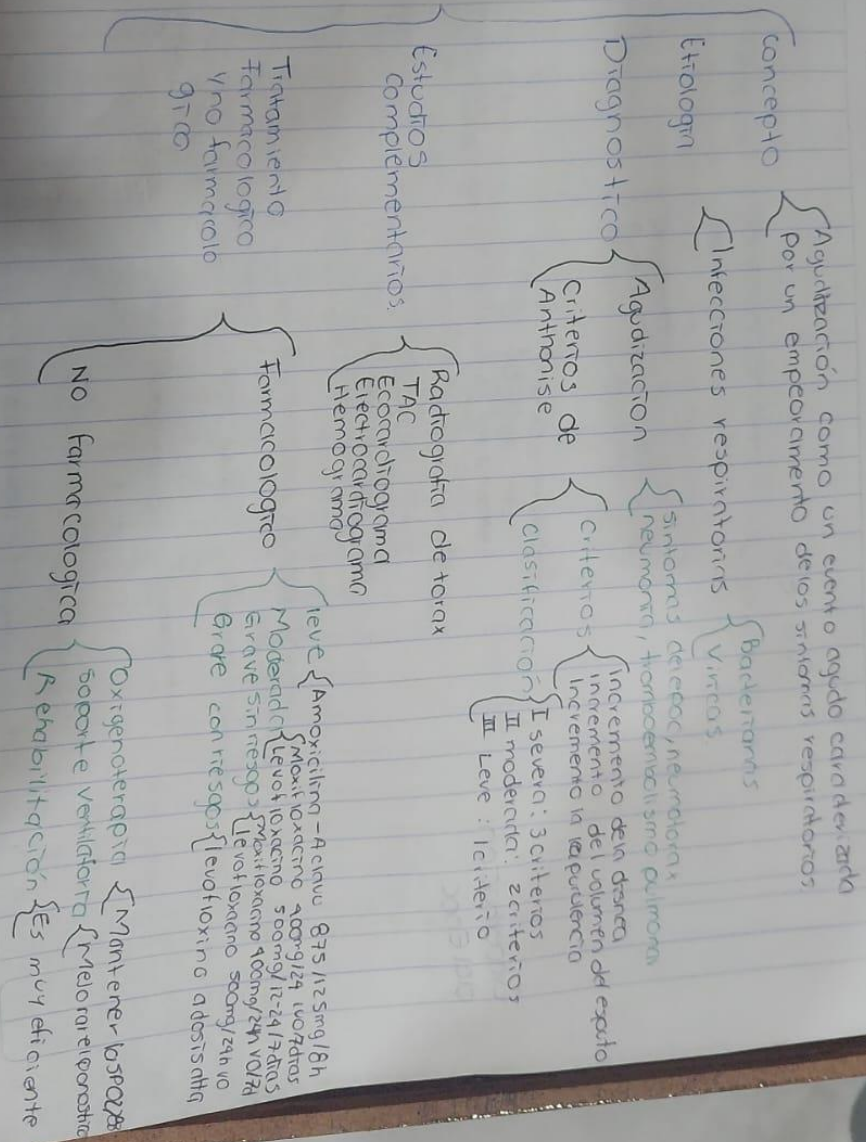 Concepto
Agudización como un evento agudo caracterizada
por un empeoramento de los sintomas respiratorios
Etiologia
Infecciones respiratorias
Bacterianas
Viricas
Diagnostico
Agudizacion
Sintomas de epoc, neumotorax
neumonia, tromboembolismo pulmonar
Criterios de
Anthonise
Criterios
Incremento de la disnea
Incremento del volumen del esputo
Incremento la purulencia
Clasificación
I severa: 3 criterios
II moderada: 2 criterios
III Leve: 1 criterio
Estudios
complementarios.
Radiografia de torax
TAC
Ecocardiograma
Electrocardiograma
Hemograma
Tratamiento
farmacologico
y no farmacolo
gico
Farmacologico
leve
Amoxicilina - A clavu 875/125mg/8h
Moderado
Moxifloxacino 400mg/24 vo/7dias
Levofloxacino 500mg/12-24/7dias
Grave sin riesgos
Moxifloxacino 400mg/24h vo/7d
levofloxacino 500mg/24h vo
Grave con riesgos
levofloxino a dosis alta
No farmacologica
Oxigenoterapia
Mantener los
Soporte ventilatorio
Rehabilitación
Es muy eficiente